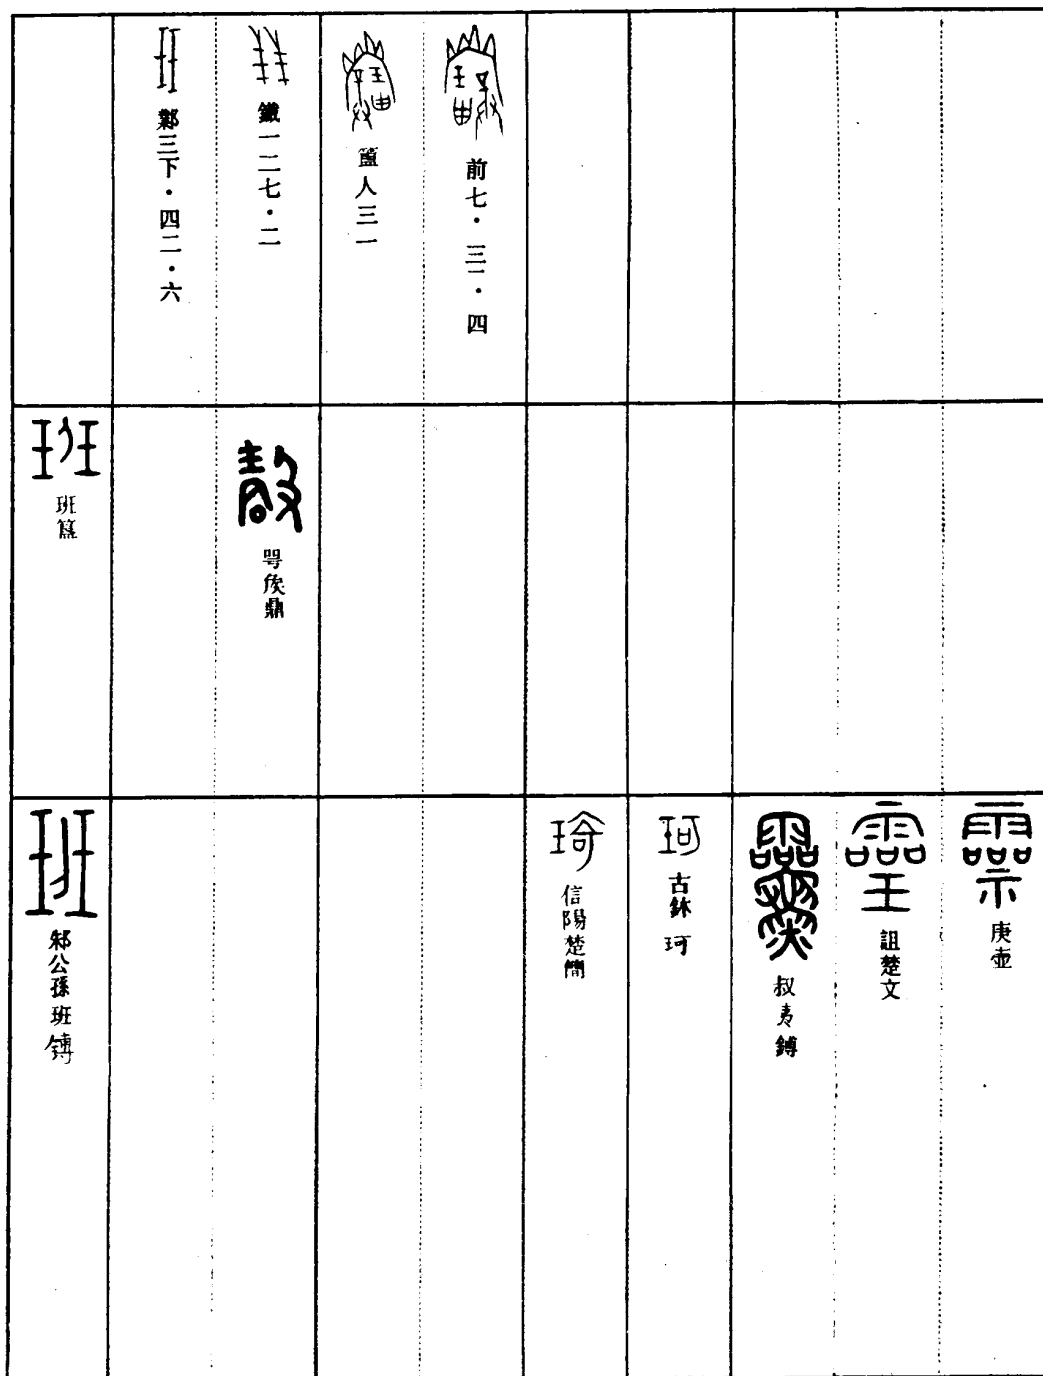 前七·三一·四
簠人三一
鐵一二七·二
鄴三下·四二·六
咢矦鼎
班簋
庚壺
詛楚文
叔夷鎛
珂
古鉨 珂
琦
信陽楚簡
班
邾公孫班鎛